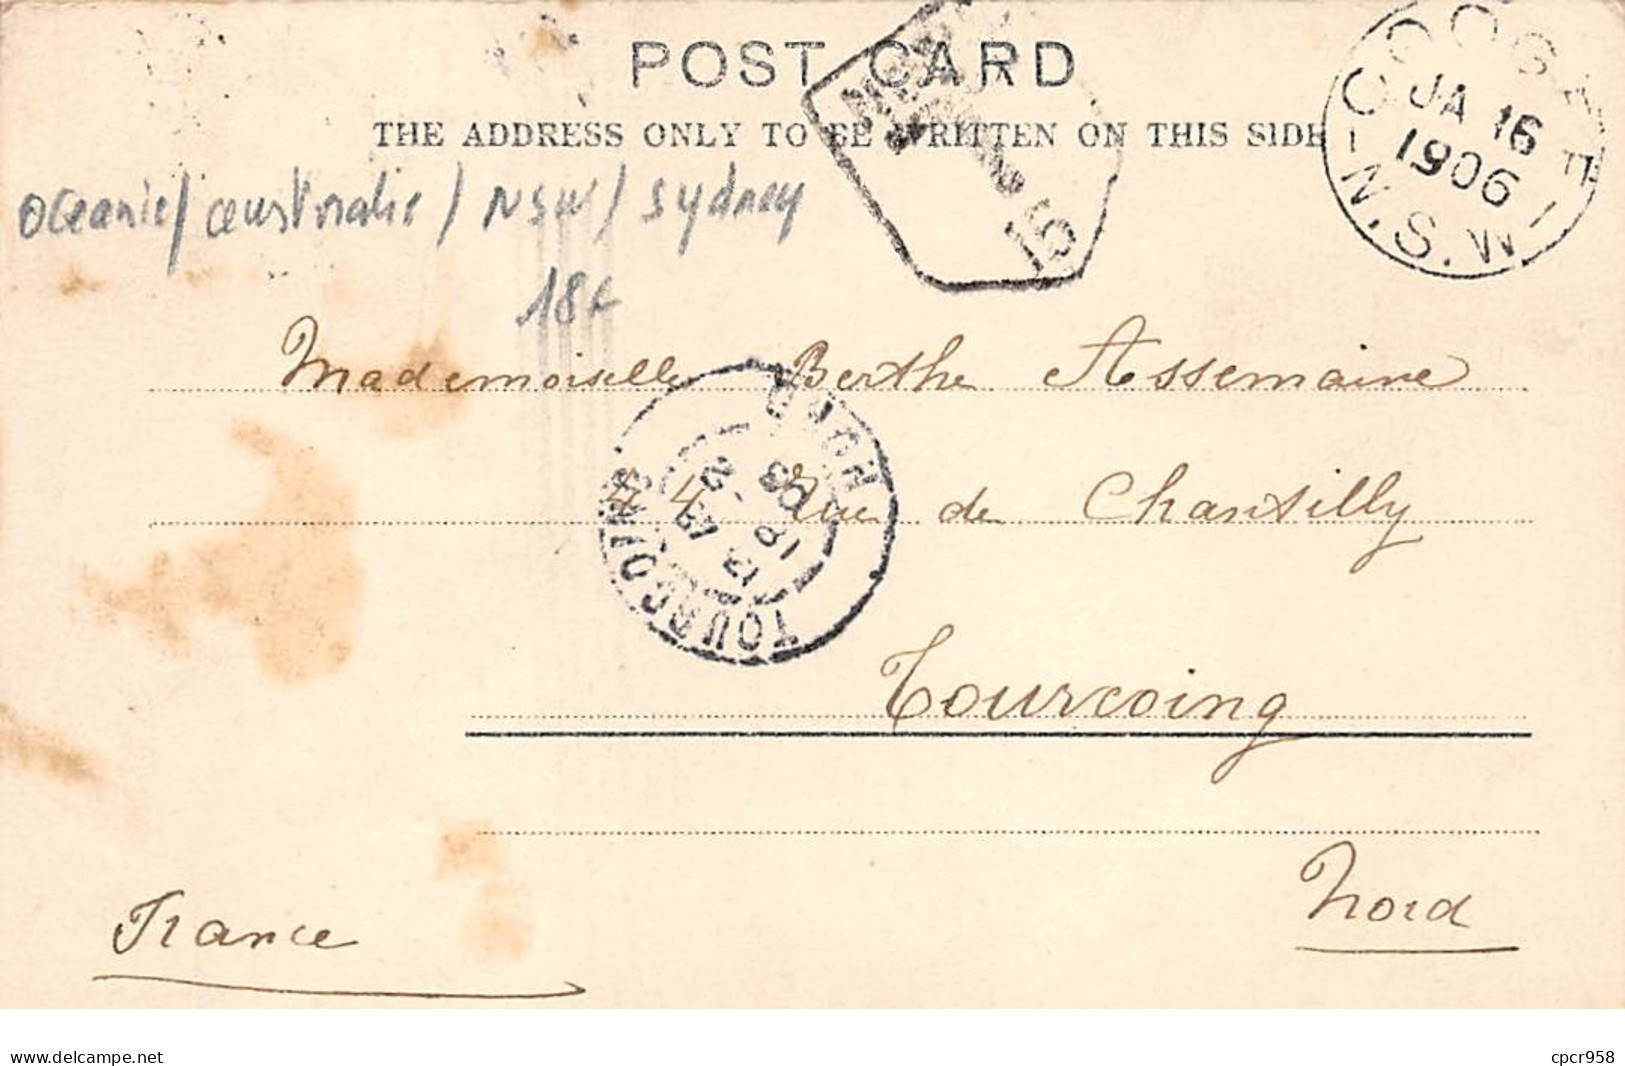 POST CARD
THE ADDRESS ONLY TO BE WRITTEN ON THIS SIDE
COOGEE
JA 16
1906
N.S.W
15
Oceanie / australie / NSW / Sydney
18€
Mademoiselle Berthe Assemaine
44 Rue de Chantilly
Tourcoing
Nord
France
TOURCOING
NORD
delcampe.net
cpcr958